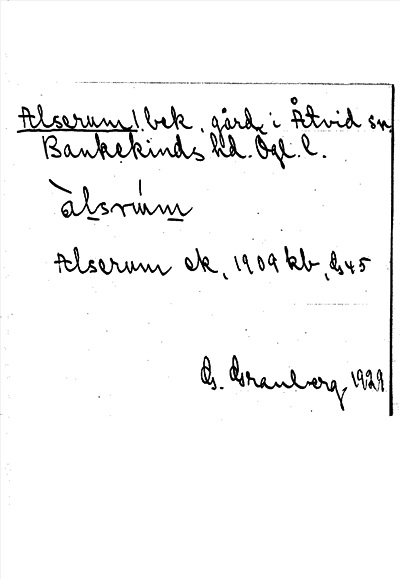 Alserum l. bek. gård i Åtvid sn,
Bankekinds hd. Ögl. l.
àlsrúm
Alserum ek, 1909 kb, Gs 45
G. Granberg 1929